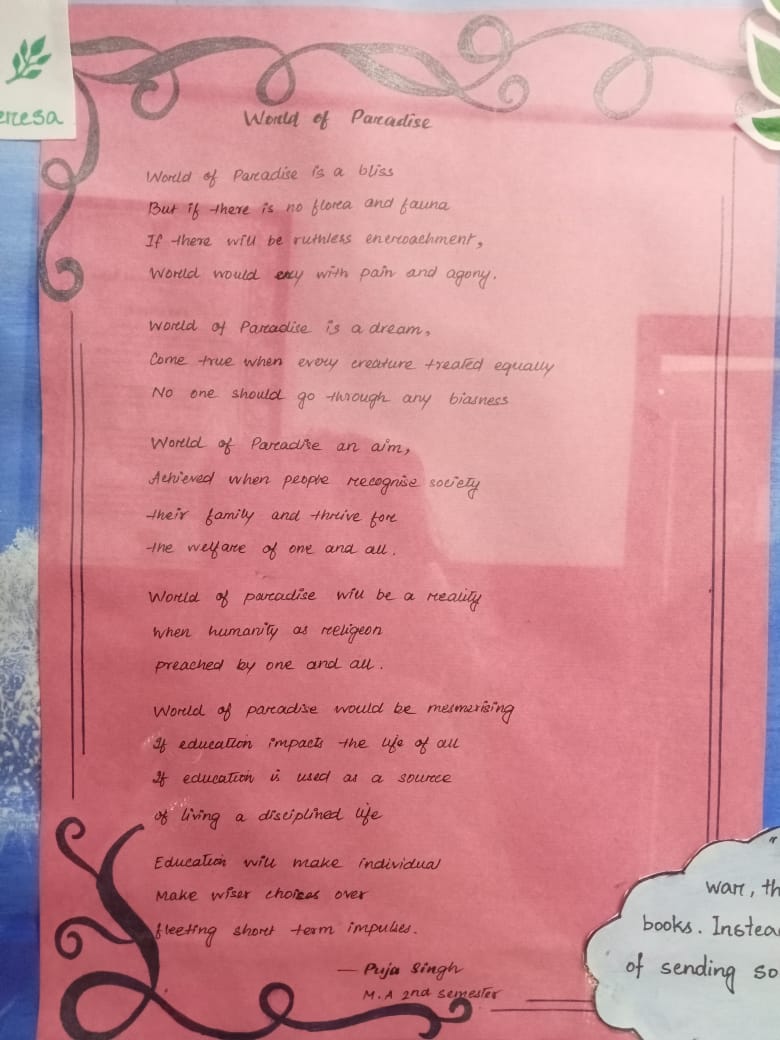 World of Paradise
World of Paradise is a bliss
But if there is no flora and fauna
If there will be ruthless encroachment,
World would cry with pain and agony.
World of Paradise is a dream,
Come true when every creature treated equally
No one should go through any biasness
World of Paradise an aim,
Achieved when people recognise society
their family and thrive for
the welfare of one and all.
World of paradise will be a reality
when humanity as religeon
preached by one and all.
World of paradise would be mesmerising
If education impacts the life of all
If education is used as a source
of living a disciplined life
Education will make individual
Make wiser choices over
fleeting short term impulses.
— Puja Singh
M.A 2nd semester
eresa
war, th
books. Instea
of sending so